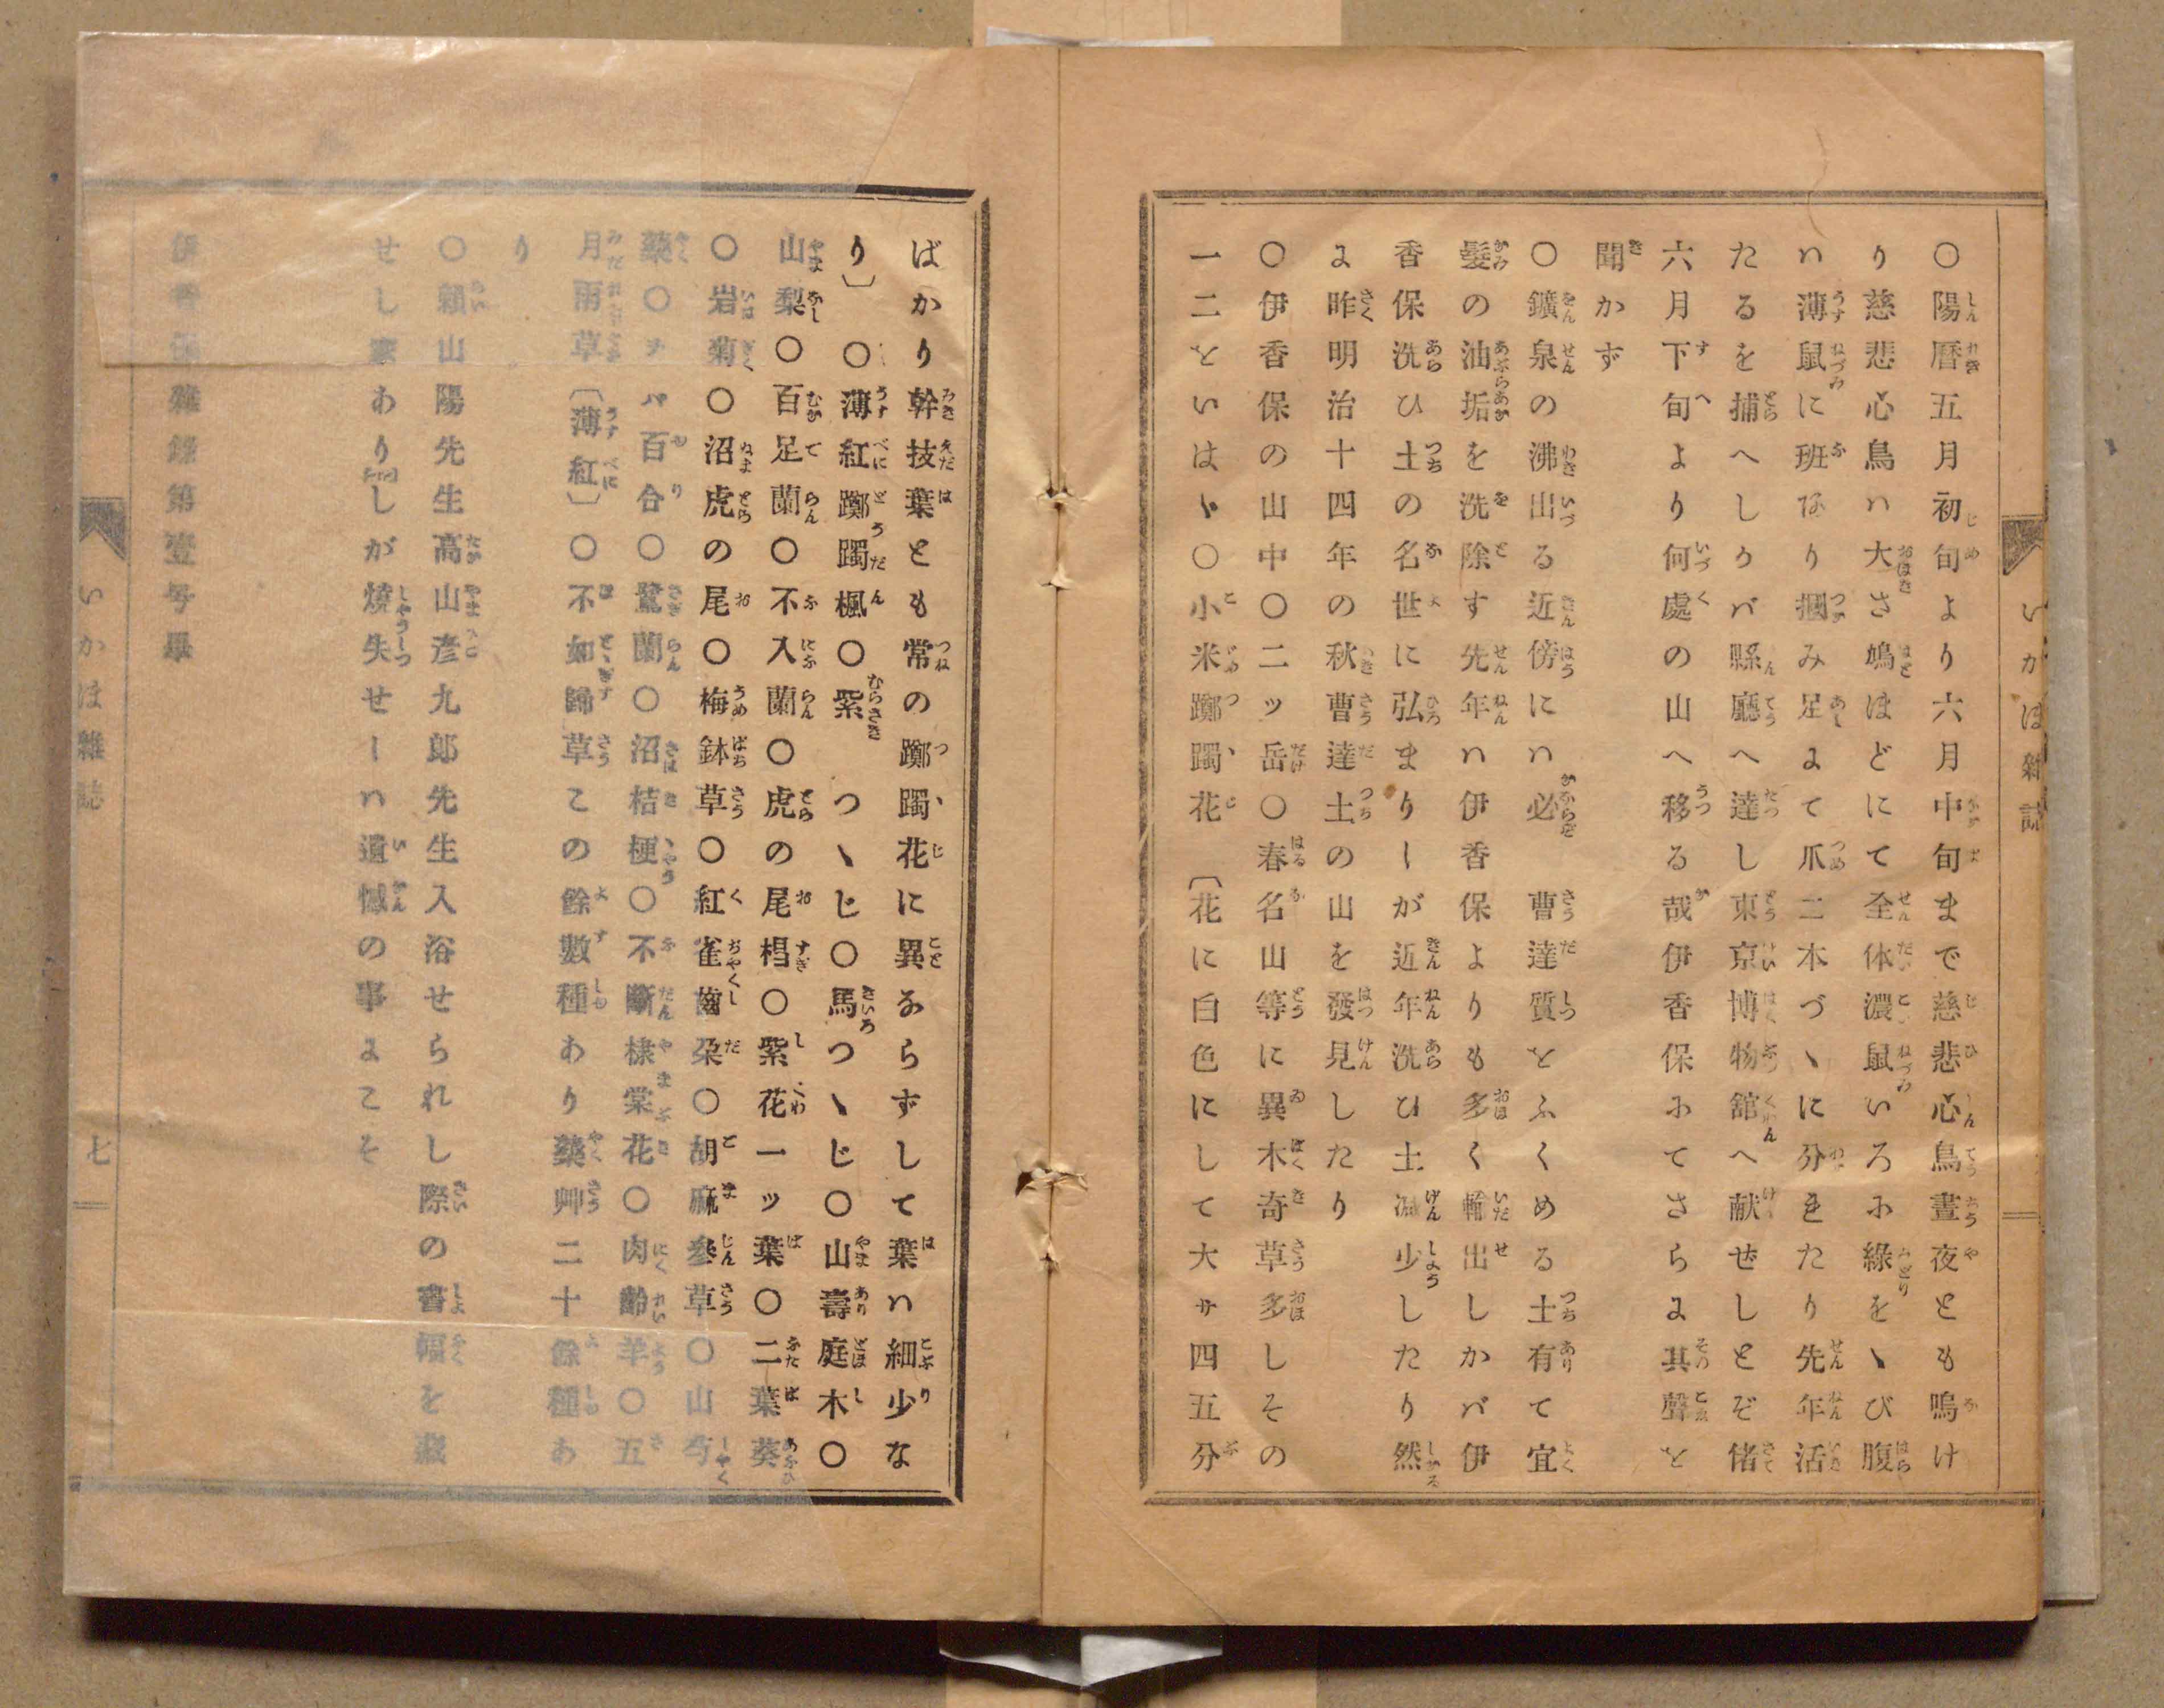 いかほ雑誌
〇陽暦五月初旬より六月中旬まで慈悲心鳥晝夜とも鳴け
り慈悲心鳥ハ大さ鳩ほどにて全体濃鼠いろふ綠をヽび腹
ハ薄鼠に班なり摑み足よて爪二本づヽに分れたり先年活
たるを捕へしかバ縣廳へ達し東京博物舘へ献ぜしとぞ偖
六月下旬より何處の山へ移る哉伊香保ふてさらよ其聲を
聞かず
〇鑛泉の沸出る近傍にハ必曹達質をふくめる土有て宜
髮の油垢を洗除す先年ハ伊香保よりも多く輸出しかバ伊
香保洗ひ土の名世に弘まりしが近年洗ひ土减少したり然
よ昨明治十四年の秋曹達土の山を發見したり
〇伊香保の山中〇二ッ岳〇春名山等に異木奇草多しその
一二をいはヽ〇小米躑躅花〔花に白色にして大サ四五分
ばかり幹技葉とも常の躑躅花に異ならずして葉ハ細少な
り〕〇薄紅躑躅楓〇紫つヽじ〇馬つヽじ〇山壽庭木〇
山梨〇百足蘭〇不入蘭〇虎の尾椙〇紫花一ッ葉〇二葉葵
〇岩菊〇沼虎の尾〇梅鉢草〇紅雀齒朶〇胡麻參草〇山芍
藥〇チバ百合〇鷺蘭〇沼桔梗〇不斷棣棠花〇肉齡羊〇五
月雨草〔薄紅〕〇不如歸草この餘數種あり藥艸二十餘種あ
り
〇賴山陽先生高山彦九郎先生入浴せられし際の書幅を藏
せし家ありしが燒失せしハ遺憾の事よこそ
伊香保雜錄第壹号畢
いかほ雜誌
七